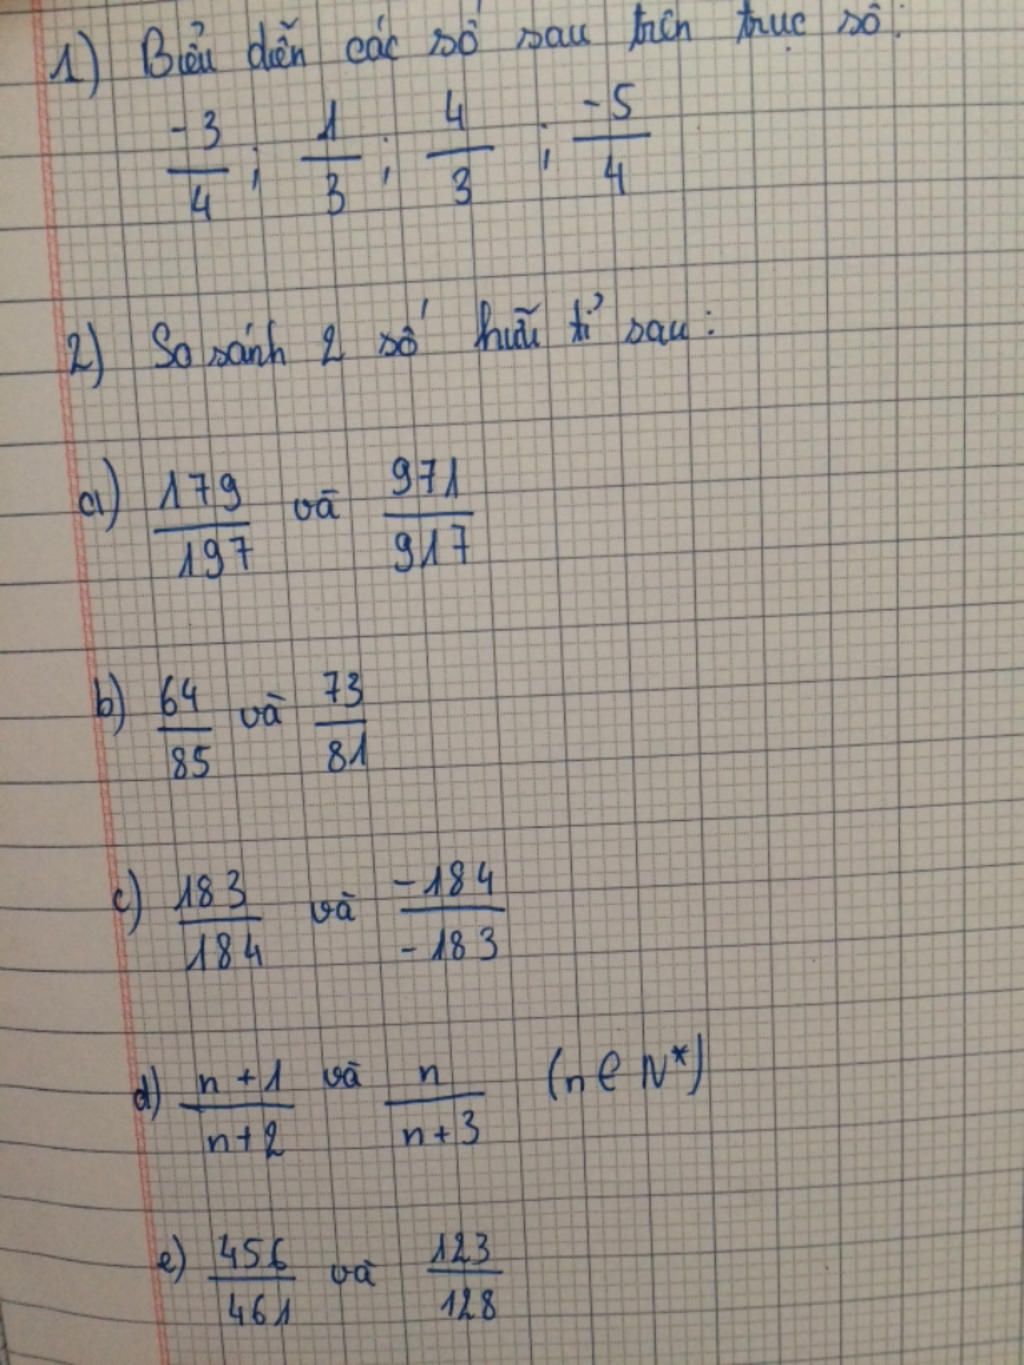 1) Biểu diễn các số sau trên trục số:
-3/4 ; 1/3 ; 4/3 ; -5/4
2) So sánh 2 số hữu tỉ sau:
a) 179/197 và 971/917
b) 64/85 và 73/81
c) 183/184 và -184/-183
d) n+1/n+2 và n/n+3 (n ∈ N*)
e) 456/461 và 123/128